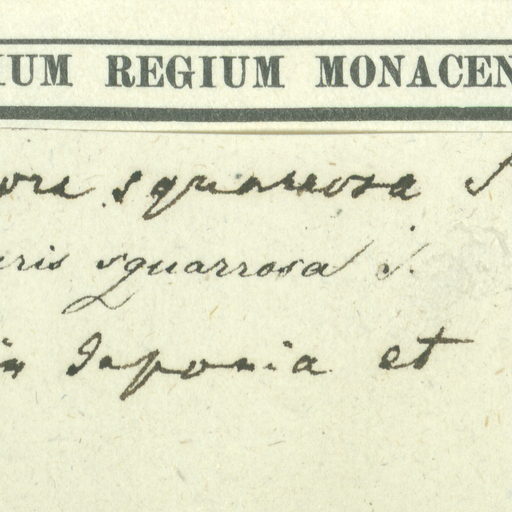 IUM REGIUM MONACEN
ora squarrosa S
aris squarrosa S.
in Japonia et